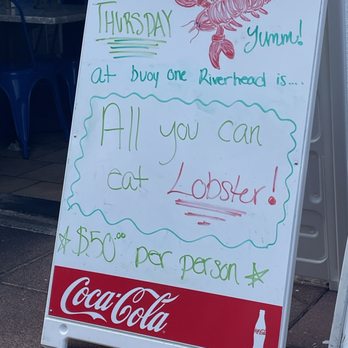 THURSDAY
Yumm!
at buoy one Riverhead is....
All you can
eat Lobster!
$50.00 per person
Coca-Cola